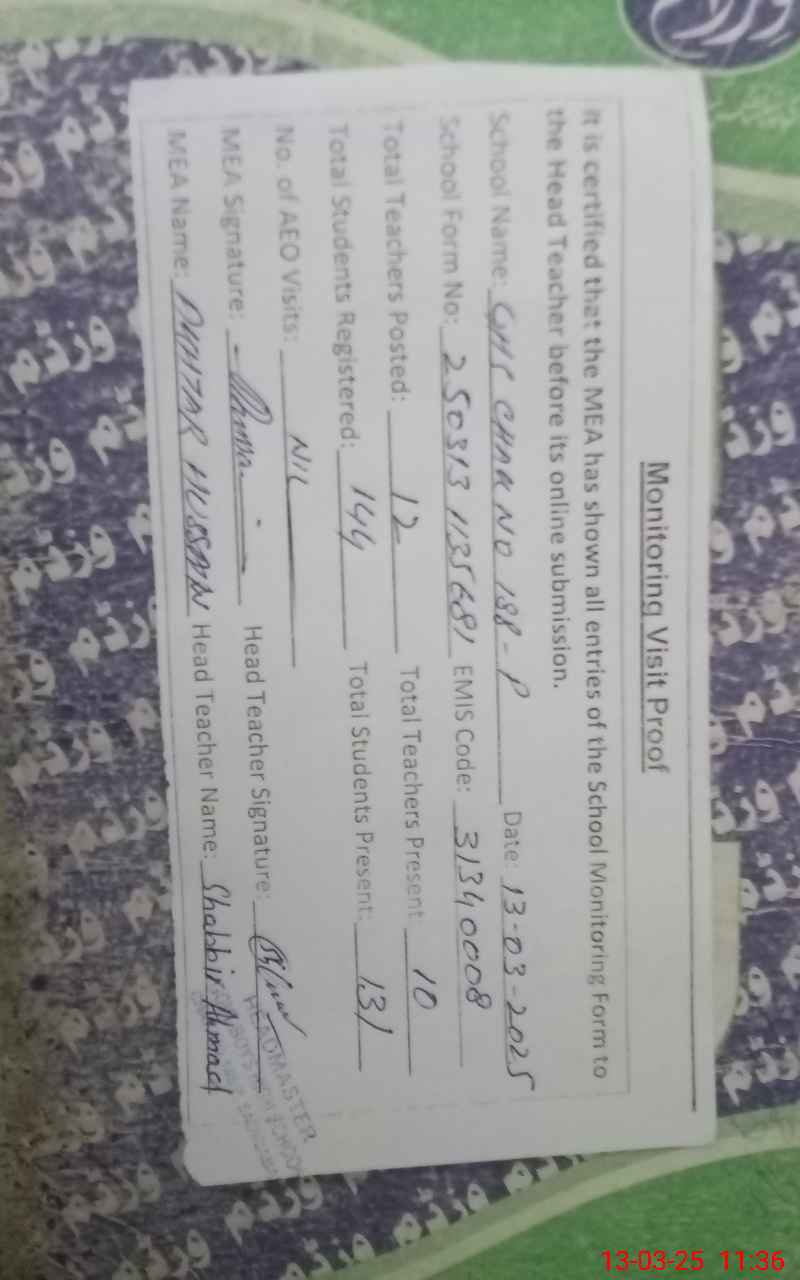 Monitoring Visit Proof
It is certified that the MEA has shown all entries of the School Monitoring Form to
the Head Teacher before its online submission.
School Name: GHS CHAK NO 188-P Date: 13-03-2025
School Form No: 250313 1135681 EMIS Code: 31340008
Total Teachers Posted: 12 Total Teachers Present: 10
Total Students Registered: 144 Total Students Present: 131
No. of AEO Visits: NIL
MEA Signature: Head Teacher Signature:
MEA Name: HUSSAIN Head Teacher Name: Shabbir Ahmad
HEADMASTER
وزڈم
13-03-25 11:36